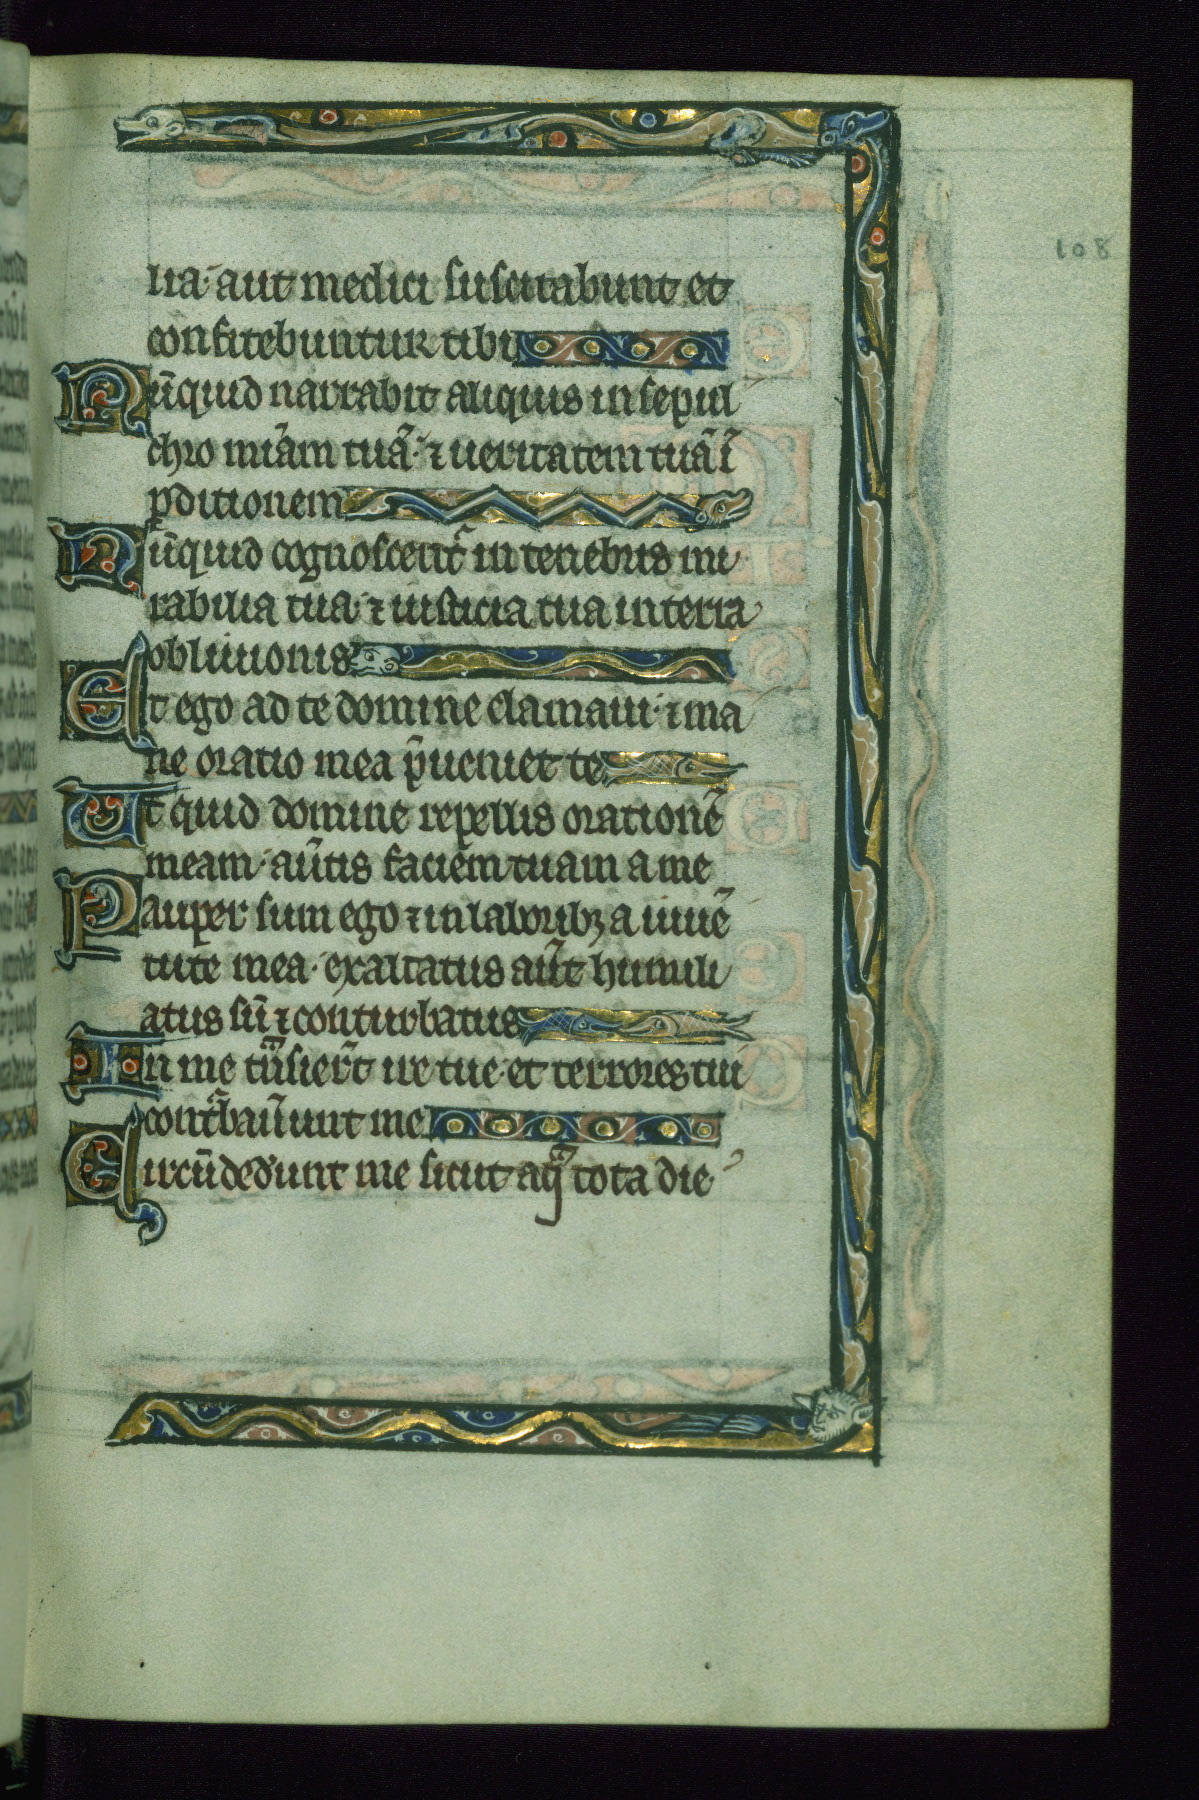 108
lia· aut medici suscitabunt et
confitebuntur tibi
Nūquid narrabit aliquis in sepul
chro mīam tuā· ⁊ ueritatem tuā ī
pditionem
Nūquid cognoscent᷑ in tenebris mi
rabilia tua· ⁊ iusticia tua in terra
obliuionis
Et ego ad te domine clamaui· ⁊ ma
ne oratio mea p̄ueniet te
Ut quid domine repellis orationē
meam· au̅tis faciem tuam a me
Pauper sum ego ⁊ in laboribꝫ a iuuē
tute mea· exaltatus aūt humili
atus sū ⁊ conturbatus
In me tͣnsiert᷑ ire tue· et terrores tui
contͬbaūunt me
Circūded'unt me sicut aqͣ tota die